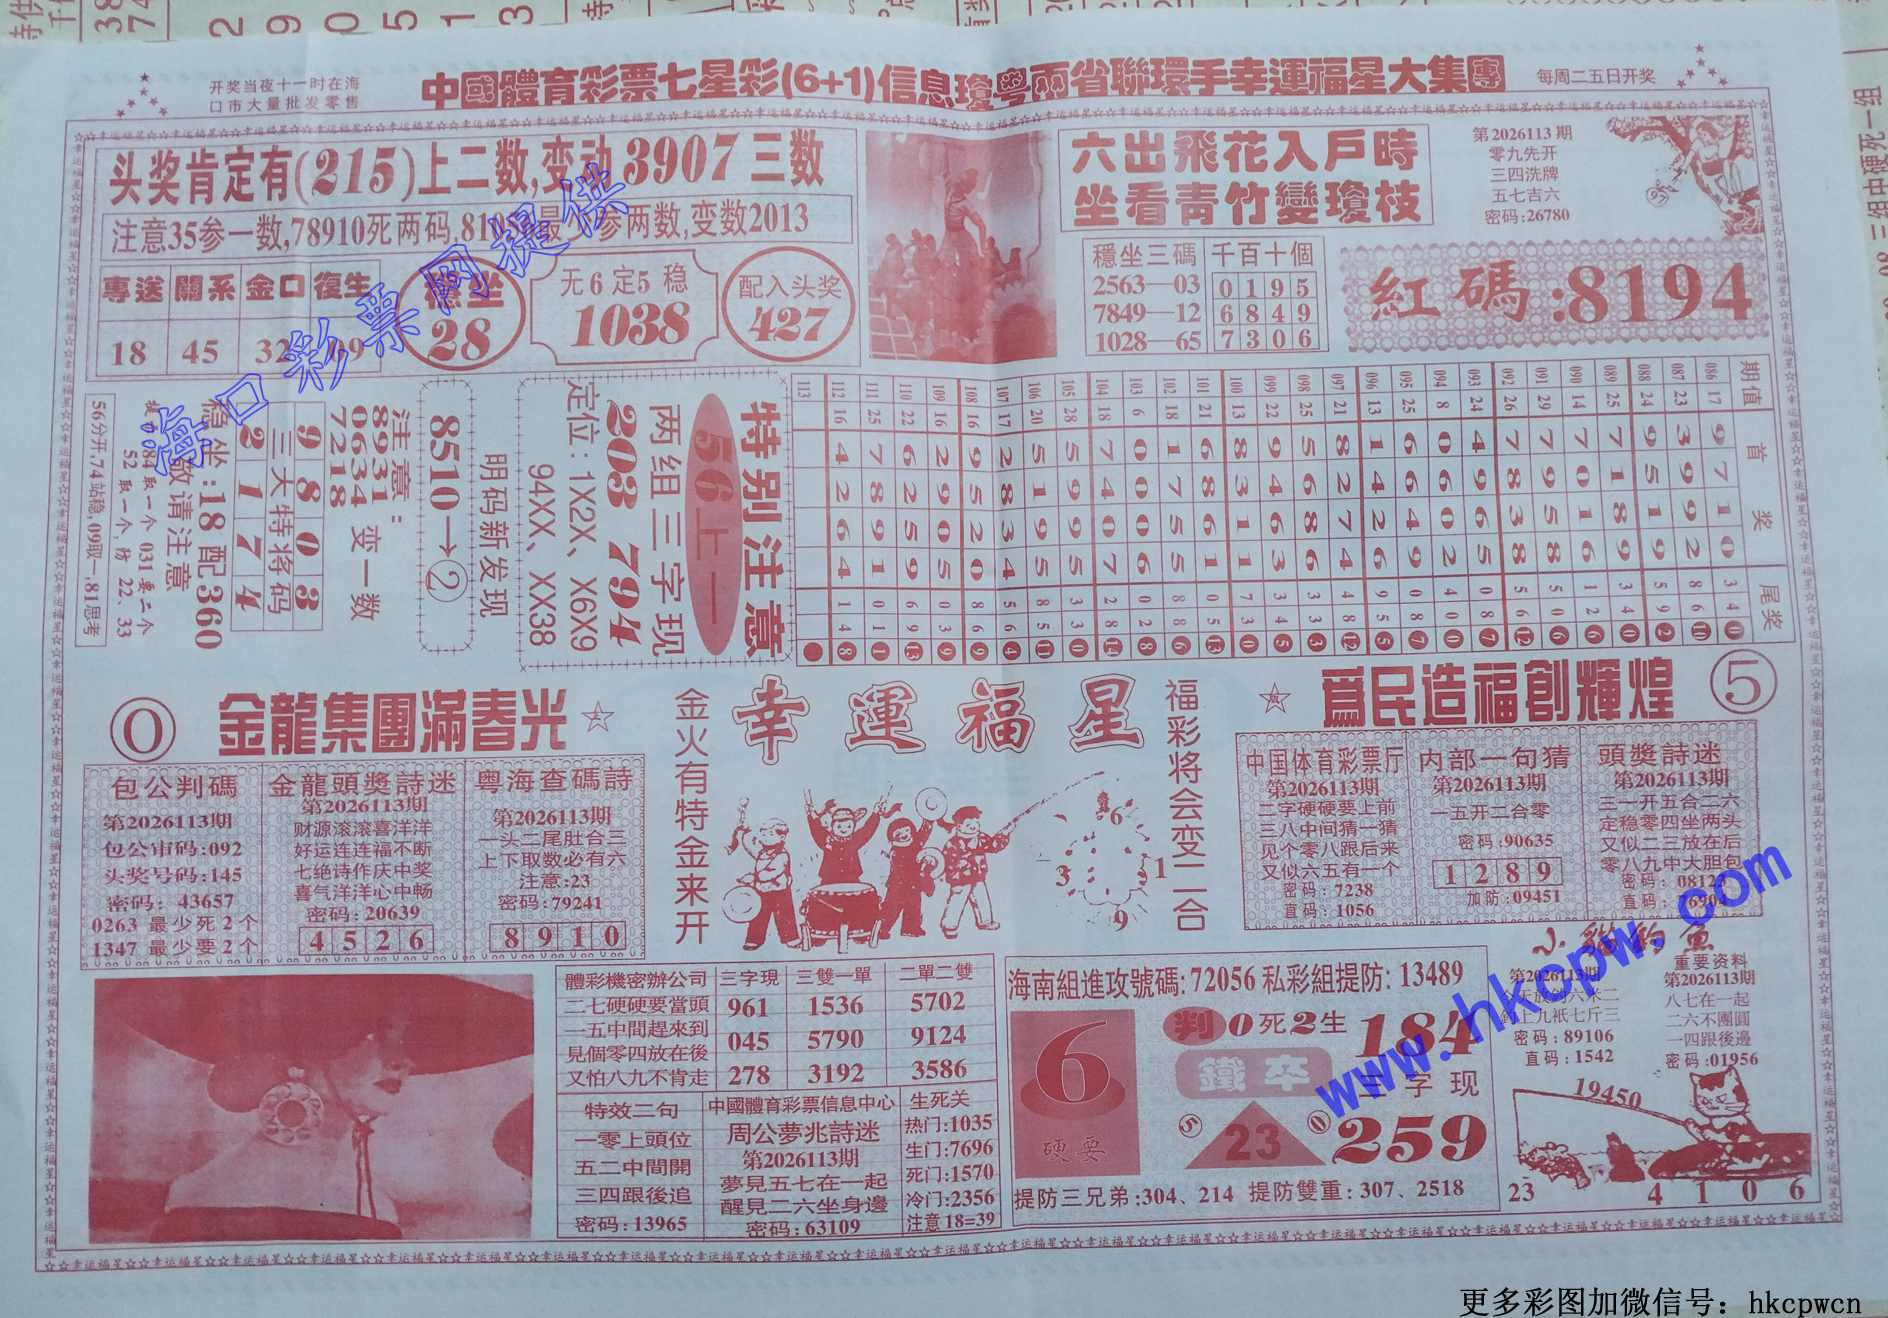 开奖当夜十一时在海
口市大量批发零售
中國體育彩票七星彩(6+1)信息瓊粤兩省聯環手幸運福星大集團
每周二五日开奖
头奖肯定有(215)上二数,变动3907三数
六出飛花入戶時
坐看青竹變瓊枝
第2026113期
零九先开
三四洗牌
五七吉六
密码:26780
專送 關系 金口 復生
18 45 32 09
穩坐
28
无6定5 稳
1038
配入头奖
427
穩坐三碼 千百十個
2563—03 0195
7849—12 6849
1028—65 7306
紅碼:8194
56分开,74站稳,09取一,81思考
敬请注意
稳坐:18配360
9803
三大特将码
2174
注意:
8931
0634
7218
变一数
8510→②
明码新发现
定位:1X2X、X6X9
94XX、XX38
203 794
两组三字现
56上一
特别注意
期值 首奖 尾奖
086 17 9710 34
087 23 3992 86
088 24 9519 59
089 25 7189 34
090 14 7016 12
091 29 7958 50
092 26 7838 56
093 24 4965 08
094 8 0602 40
095 25 6649 08
096 13 1426 95
097 21 8274 48
099 22 9463 34
100 13 8311 73
101 21 6861 05
102 18 1755 88
103 6 0006 02
104 18 7407 28
105 28 5995 33
106 20 5195 85
107 17 2834 56
108 16 9520 86
109 16 2905 03
110 22 6259 69
111 25 7891 01
112 16 4264 14
113
0
金龍集團滿春光
金火有特金来开
幸運福星
福彩将会变二合
爲民造福創輝煌
5
包公判碼
第2026113期
包公密码:092
头奖号码:145
密码:43657
0263 最少死2个
1347 最少要2个
金龍頭獎詩迷
第2026113期
财源滚滚喜洋洋
好运连连福不断
七绝诗作庆中奖
喜气洋洋心中畅
密码:20639
4526
粤海查碼詩
第2026113期
一头二尾肚合三
上下取数必有六
注意:23
密码:79241
8910
6
3
1
9
中国体育彩票厅
第2026113期
二字硬硬要上前
三八中间猜一猜
见个零八跟后来
又似六五有一个
密码:7238
直码:1056
内部一句猜
第2026113期
一五开二合零
密码:90635
1289
加防:09451
頭獎詩迷
第2026113期
三一开五合二六
定稳零四坐两头
又似二三放在后
零八九中大胆包
體彩機密辦公司
二七硬硬要當頭
一五中間趕來到
見個零四放在後
又怕八九不肯走
三字現 三雙一單 二單二雙
961 1536 5702
045 5790 9124
278 3192 3586
特效二句
一零上頭位
五二中間開
三四跟後追
密码:13965
中國體育彩票信息中心
周公夢兆詩迷
第2026113期
夢見五七在一起
醒見二六坐身邊
密码:63109
生死关
热门:1035
生门:7696
死门:1570
冷门:2356
注意18=39
海南組進攻號碼:72056 私彩組提防:13489
6
硬要
判0死2生
鐵卒
184
二字现
5 23 0
259
提防三兄弟:304、214 提防雙重:307、2518
第2026113期
密码:89106
直码:1542
重要资料
第2026113期
八七在一起
二六不團圓
一四跟後邊
密码:01956
19450
23 4 1 0 6
海口彩票网提供
www.hkcpw.com
更多彩图加微信号:hkcpwcn